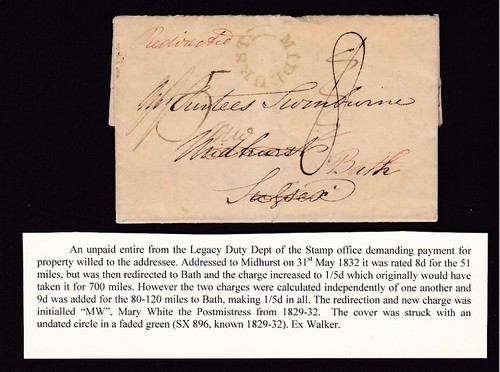 Redirected
MIDHURST
Surtees Swinburne
Midhurst Bath
Sussex
8
An unpaid entire from the Legacy Duty Dept of the Stamp office demanding payment for
property willed to the addressee. Addressed to Midhurst on 31st May 1832 it was rated 8d for the 51
miles, but was then redirected to Bath and the charge increased to 1/5d which originally would have
taken it for 700 miles. However the two charges were calculated independently of one another and
9d was added for the 80-120 miles to Bath, making 1/5d in all. The redirection and new charge was
initialled “MW”, Mary White the Postmistress from 1829-32. The cover was struck with an
undated circle in a faded green (SX 896, known 1829-32). Ex Walker.